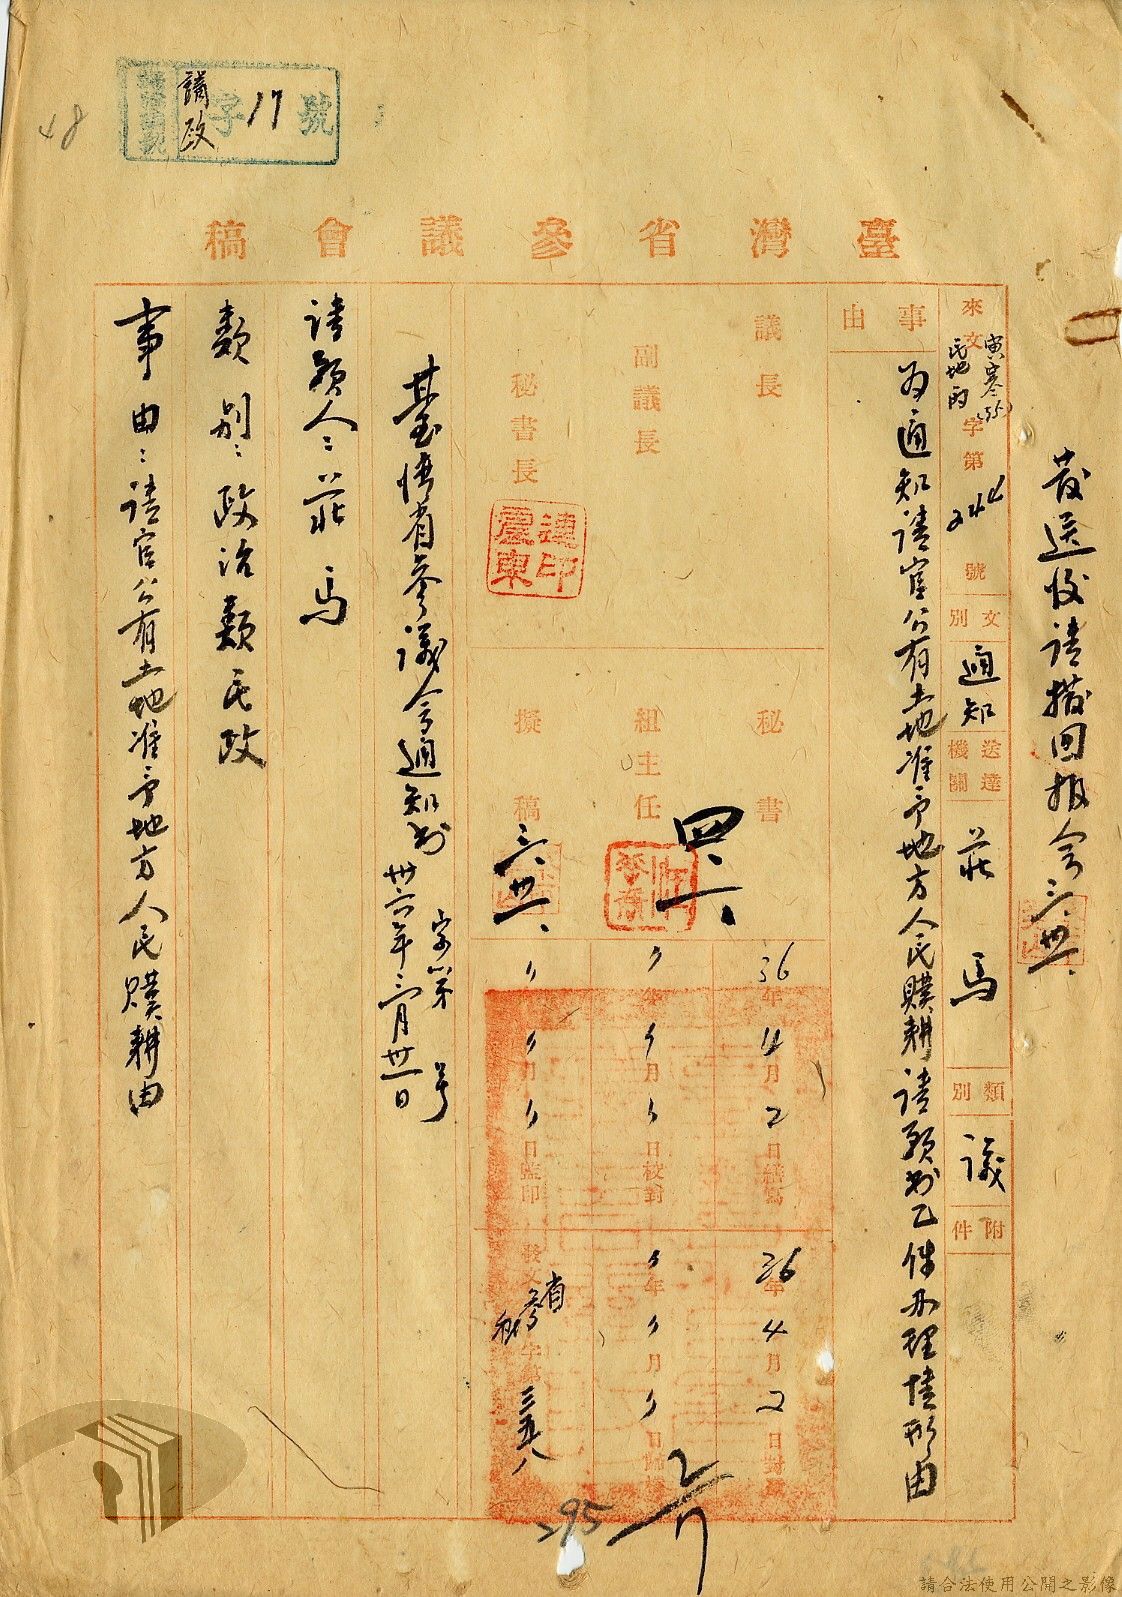 請政字17號
48
臺灣省參議會稿
發送後請擲回報會 三、卅一、
來文 寅寒 民地丙 字第244號
文別 通知
送達機關 莊馬
類別 議
附件
事由 為通知請官公有土地准予地方人民贌耕請願書乙件办理情形由
議長
副議長
秘書長
連震東印
秘書 四、一、
組主任
擬稿 三、卅一、
36年4月2日繕寫
年月日校對
年月日監印
36年4月2日對
年月日
發文 省參秘字第三五八
臺灣省參議会通知書 字第 号
卅六年三月卅一日
請願人：莊馬
類別：政治類民政
事由：請官公有土地准予地方人民贌耕由
295
請合法使用公開之影像